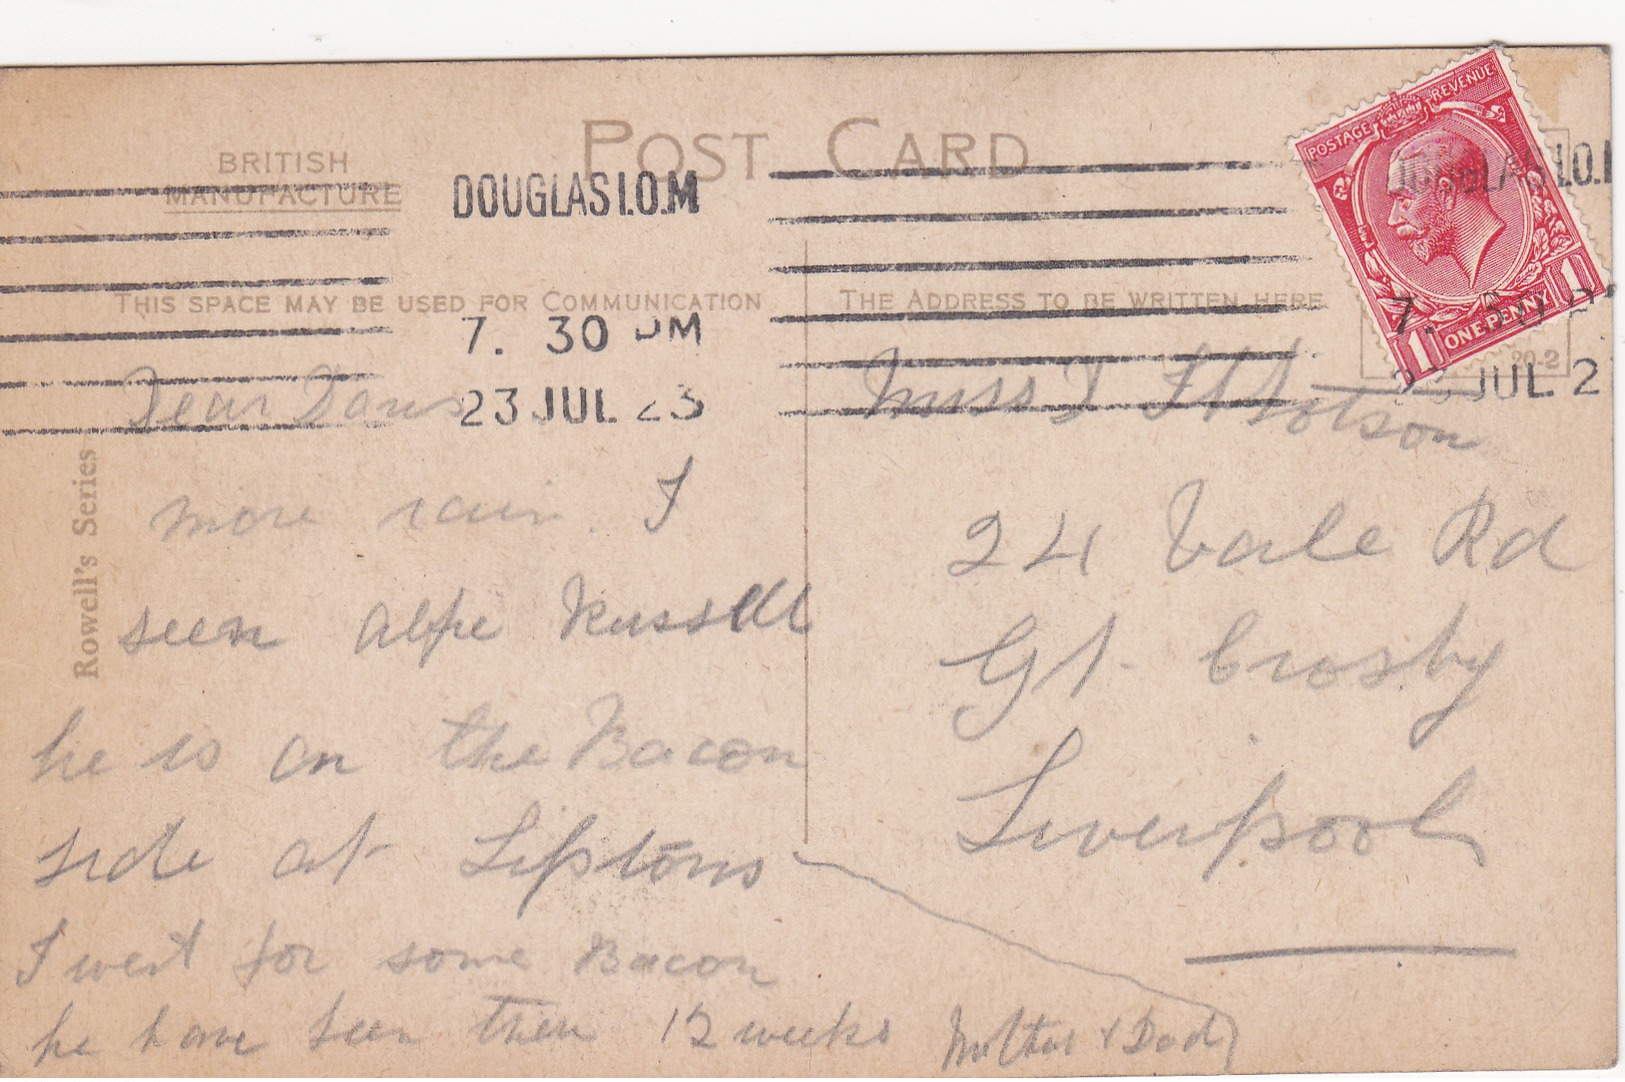 POST CARD
BRITISH
MANUFACTURE
DOUGLAS I.O.M
7. 30 PM
23 JUL 23
POSTAGE REVENUE
1 ONE PENNY 1
DOUGLAS I.O.M
7. 30 P
23 JUL 2
20-2
THIS SPACE MAY BE USED FOR COMMUNICATION
THE ADDRESS TO BE WRITTEN HERE
Rowell's Series
Dear
more rain. I
seen Russell
he is on the Bacon
side at Liptons
I went for some Bacon
he have been there 12 weeks
Mother & Dad
Miss I
24 Vale Rd
Gt. Crosby
Liverpool